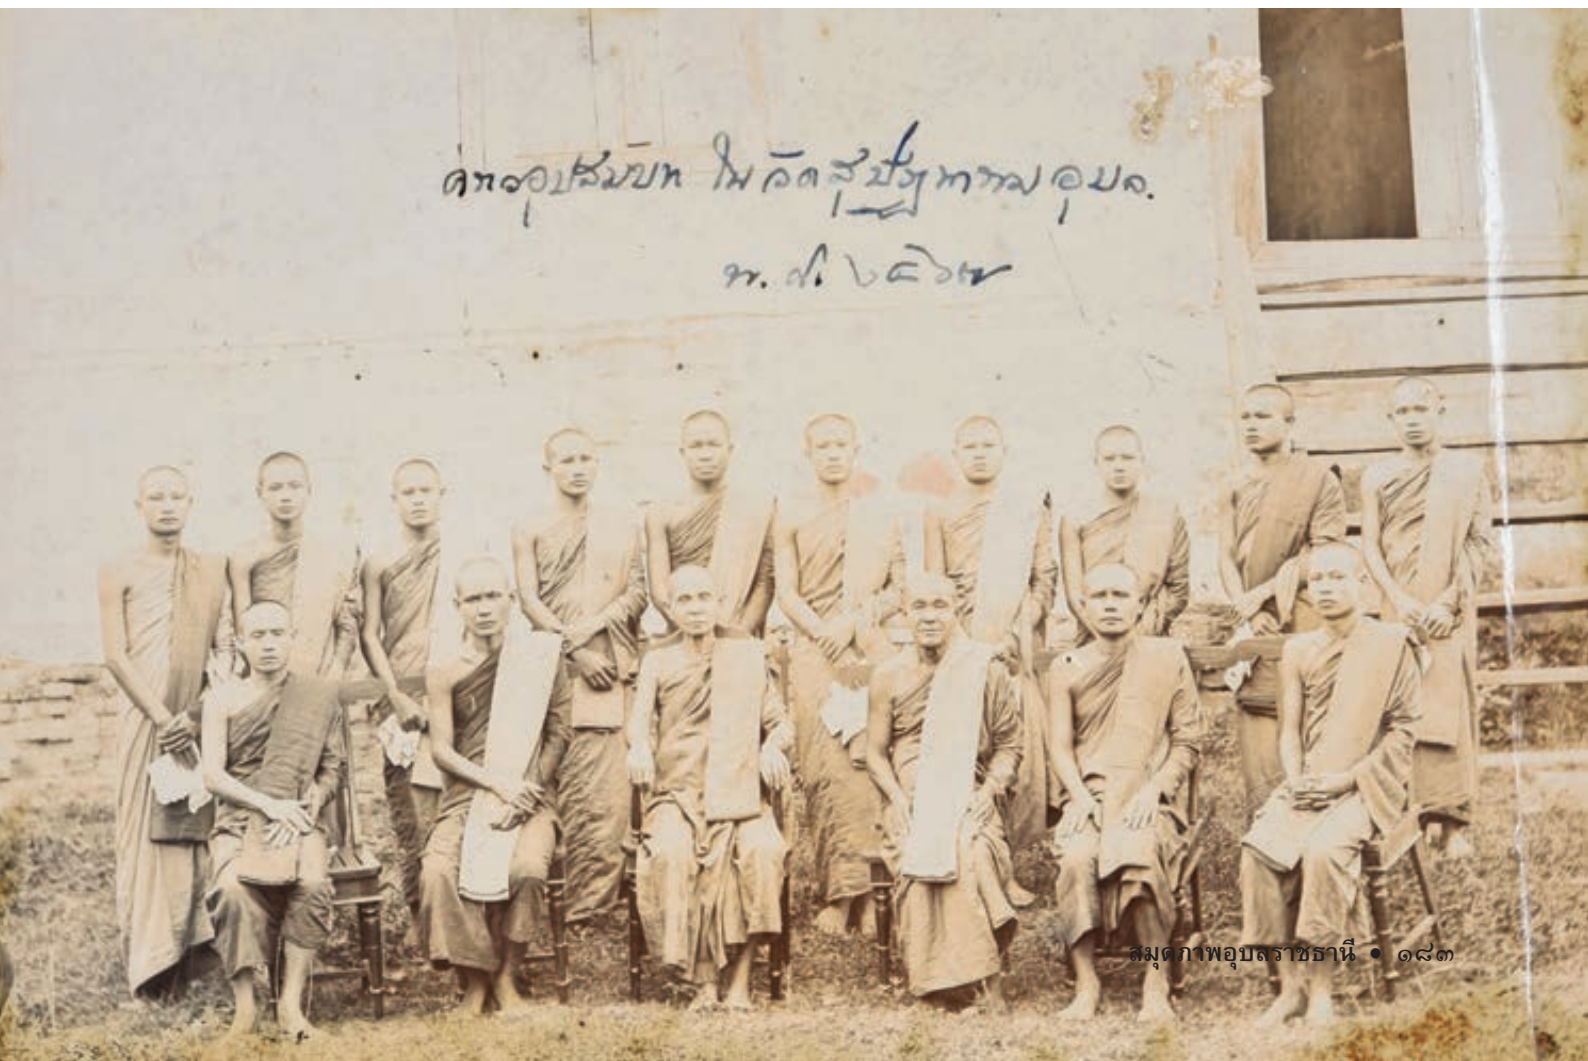 คราวอุปสมบท ในวัดสุปัฏนาราม อุบล.
พ.ศ. ๒๔๖๗
สมุดภาพอุบลราชธานี • ๑๘๓